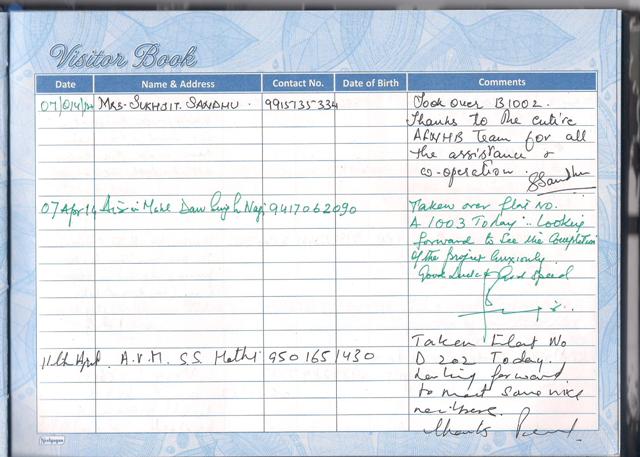 Visitor Book
Date Name & Address Contact No. Date of Birth Comments
07/04/14 Mrs. SUKHJIT. SANDHU. 9915735334 Took over B1002.
Thanks to the entire
AFNHB Team for all
the assistance &
co-operation.
SSandhu
07 Apr 14 Air Mshl Daw Singh Negi 9417062090 Taken over flat No.
A 1003 Today. Looking
forward to see the Completion
of the project anxiously.
Good Luck & God speed
11th April. A.V.M. S.S. Hothi 950 165 1430 Taken Flat No
D 202 Today.
Looking forward
to meet some nice
neibers.
Thanks
Neelgagan